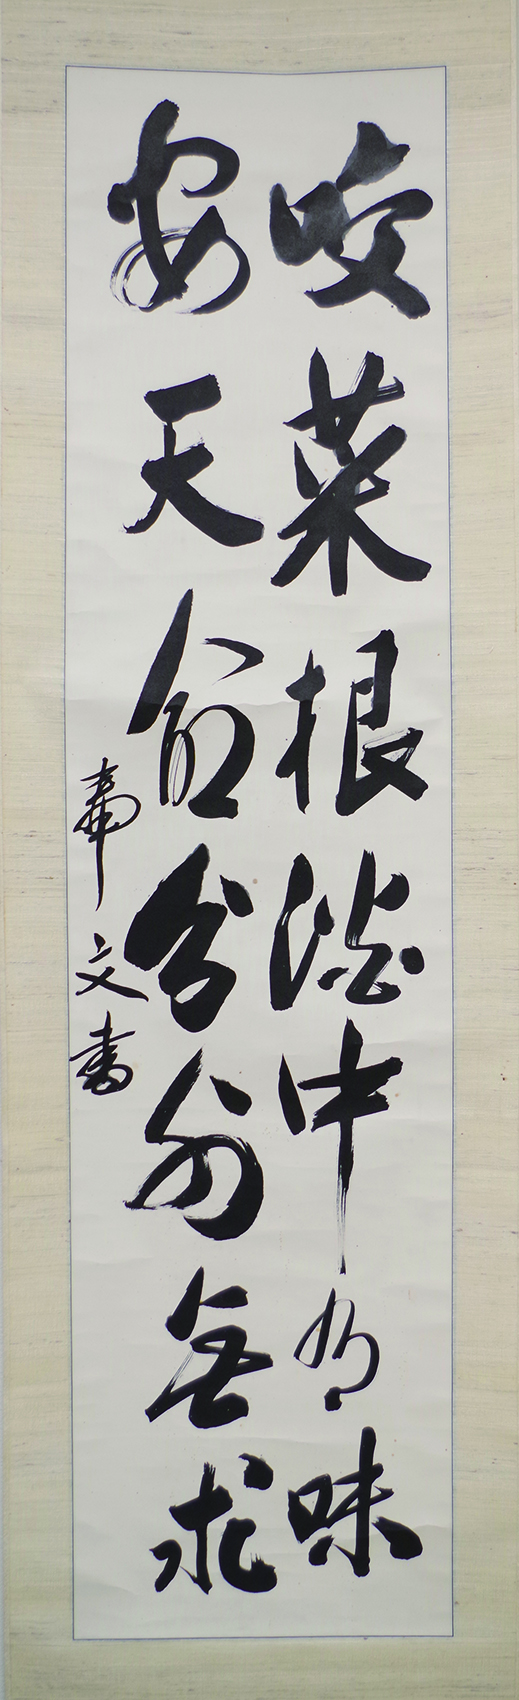 咬菜根澹中有味
安天命分外無求
文書